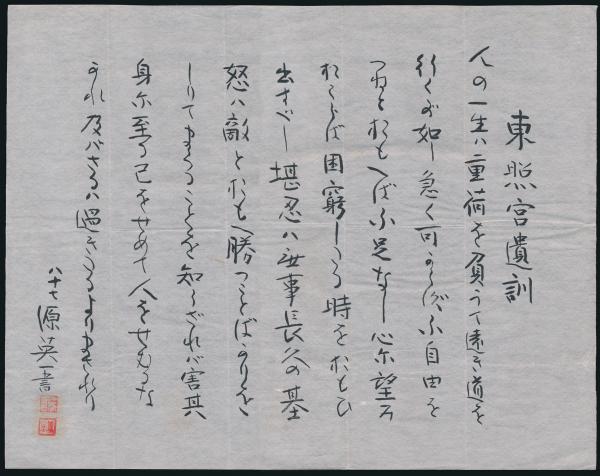 東照宮遺訓
人の一生ハ重荷を負うて遠き道を
行くが如し急く可からず不自由を
つねとおもへば不足なし心に望み
おこらば困窮したる時をおもひ
出すべし堪忍ハ無事長久の基
怒ハ敵とおもへ勝つことばかりを
しりてまくることを知らざれバ害其
身に至る己をせめて人をせむるな
かれ及バざるハ過ぎたるよりまされり
八十七 源英一書